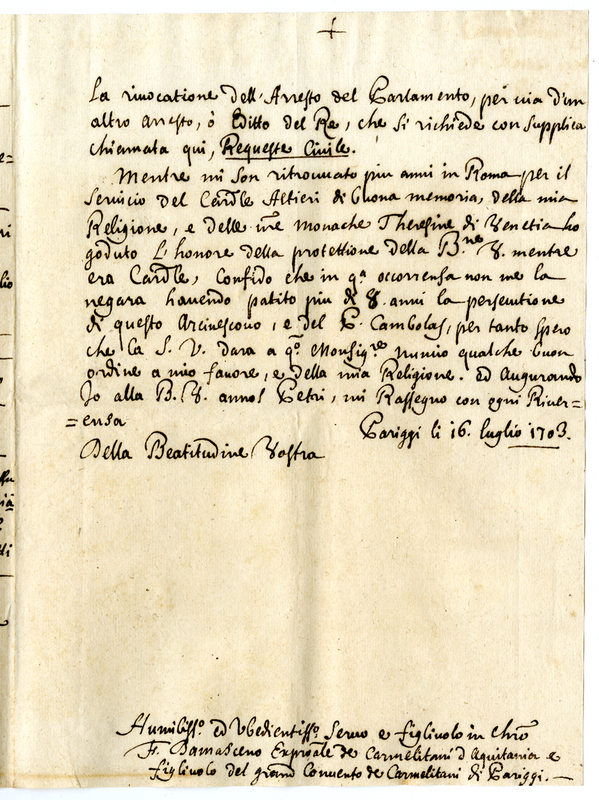 La rivocatione dell' Arresto del Parlamento, per via d'un
altro arresto, ò Editto del Re, che si richiede con supplica
chiamata qui, Requeste Civile.
Mentre mi son ritrovato più anni in Roma per il
servicio del Cardle Altieri di buona memoria, della mia
Religione, e delle vre monache Theresine di Venetia ho
goduto l'honore della protettione della B.ne V. mentre
era Cardle, confido che in qa occorrensa non me la
negara havendo patito piu di 8. anni la persecutione
di questo Arcivescovo, e del P. Cambolas, per tanto spero
che la S. V. dara a qo Monsigre nunio qualche buon
ordine a mio favore, e della mia Religione. ed Augurando
Io alla B. V. annos Petri, mi Rassegno con ogni River=
=ensa
Pariggi li 16. luglio 1703.
Della Beatitudine Vostra
Humilisso ed Ubedientisso Servo e figlivolo in Chro
F. Damasceno Exproale de Carmelitani d'Aquitania e
figlivolo del grand Convento de Carmelitani di Pariggi.